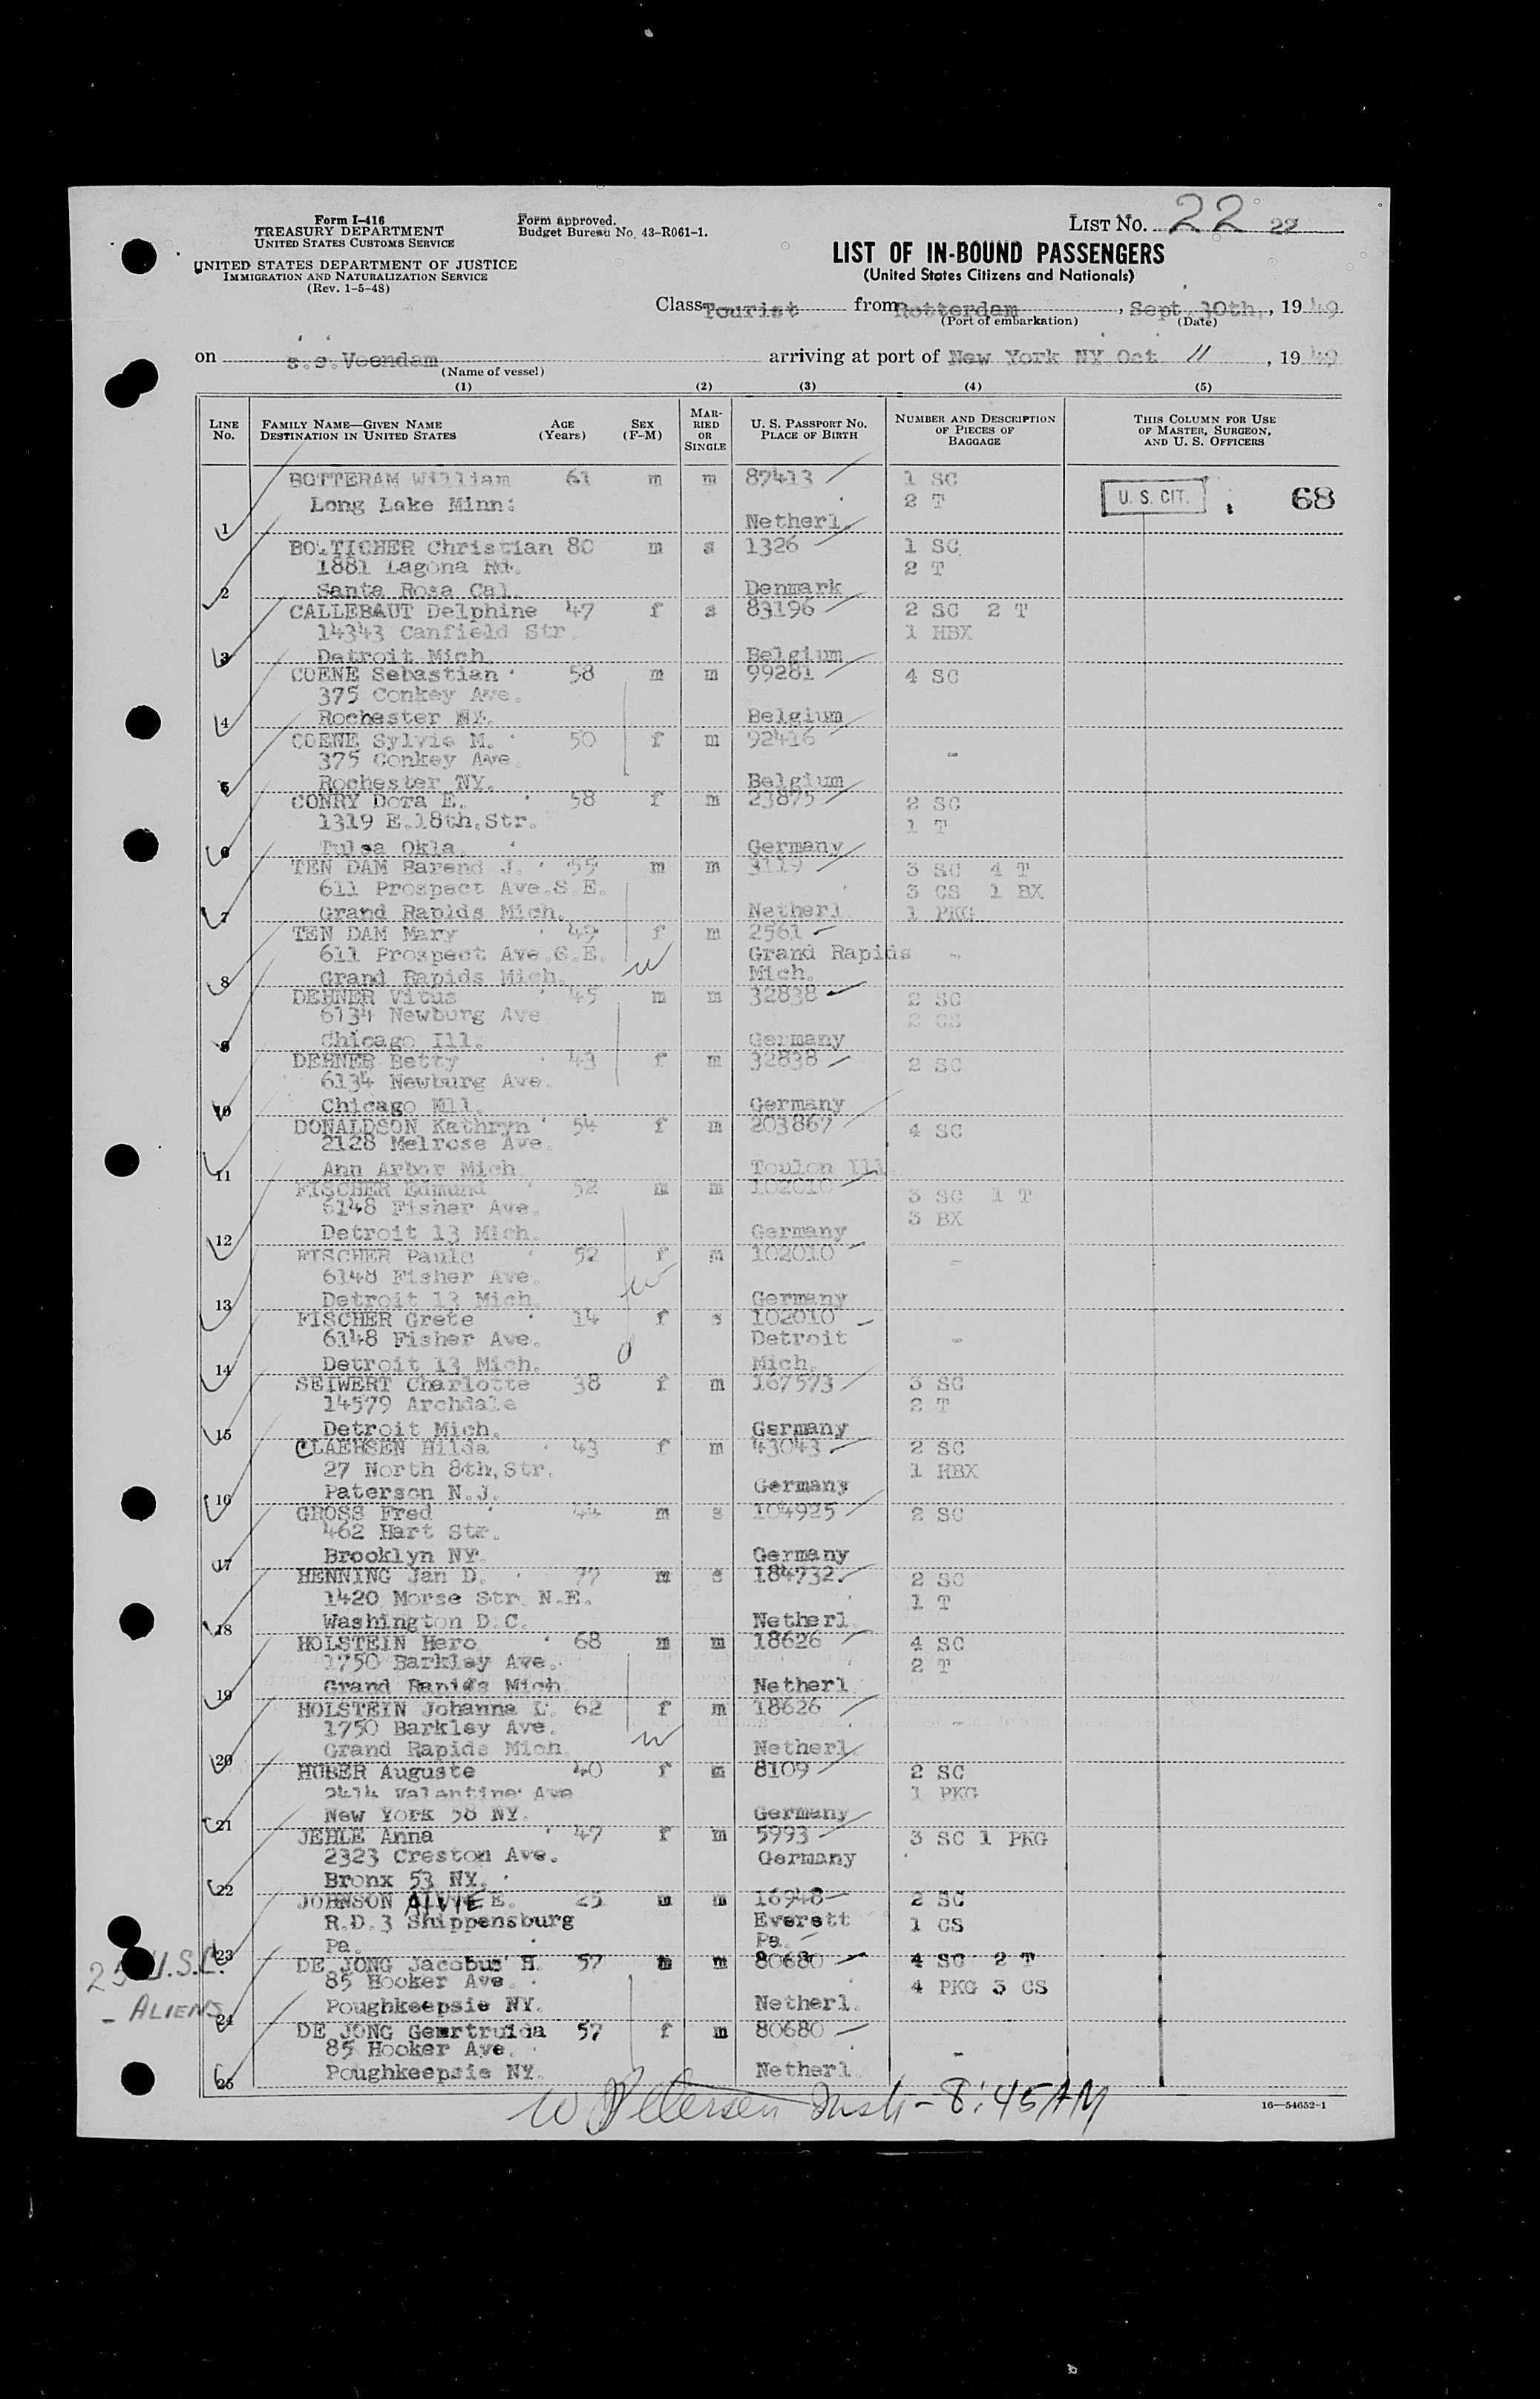 Form I-416
TREASURY DEPARTMENT
UNITED STATES CUSTOMS SERVICE
UNITED STATES DEPARTMENT OF JUSTICE
IMMIGRATION AND NATURALIZATION SERVICE
(Rev. 1-5-48)
Form approved.
Budget Bureau No. 43-R061-1.
LIST No. 22 22
LIST OF IN-BOUND PASSENGERS
(United States Citizens and Nationals)
Class Tourist from Rotterdam, Sept. 30th, 1949
(Port of embarkation) (Date)
on s.s. Veendam arriving at port of New York NY Oct 11, 1949
(Name of vessel)
(1) (2) (3) (4) (5)
LINE No. FAMILY NAME—GIVEN NAME DESTINATION IN UNITED STATES AGE (Years) SEX (F-M) MARRIED OR SINGLE U. S. PASSPORT No. PLACE OF BIRTH NUMBER AND DESCRIPTION OF PIECES OF BAGGAGE THIS COLUMN FOR USE OF MASTER, SURGEON, AND U. S. OFFICERS
BOTTERAM William 61 m m 87413 1 SC
Long Lake Minn: 2 T U. S. CIT. 68
1 Netherl.
BOLTICHER Christian 80 m s 1326 1 SC
1881 Lagona Rd. 2 T
2 Santa Rosa Cal. Denmark
CALLEBAUT Delphine 47 f s 83196 2 SC 2 T
14343 Canfield Str. 1 HBX
3 Detroit Mich. Belgium
COENE Sebastian 58 m m 99281 4 SC
375 Conkey Ave.
4 Rochester NY. Belgium
COENE Sylvie M. 50 f m 92416
375 Conkey Ave. -
5 Rochester NY. Belgium
CONRY Dora E. 58 f m 23875 2 SC
1319 E.18th.Str. 1 T
6 Tulsa Okla. Germany
TEN DAM Barend J. 55 m m 3119 3 SC 4 T
611 Prospect Ave.S.E. 3 CS 1 BX
7 Grand Rapids Mich. Netherl. 1 PKG
TEN DAM Mary 49 f m 2561
611 Prospect Ave.S.E. Grand Rapids -
8 Grand Rapids Mich. Mich. w
DEHNER Vitus 45 m m 32838 2 SC
6134 Newburg Ave. 2 CS
9 Chicago Ill. Germany
DEHNER Betty 43 f m 32838 2 SC
6134 Newburg Ave.
10 Chicago Ill. Germany
DONALDSON Kathryn 54 f m 203867 4 SC
2128 Melrose Ave.
11 Ann Arbor Mich. Toulon Ill
FISCHER Edmund 52 m m 102010 3 SC 1 T
6148 Fisher Ave. 3 BX
12 Detroit 13 Mich. Germany
FISCHER Paula 52 f m 102010 -
6148 Fisher Ave. w
13 Detroit 13 Mich. Germany
FISCHER Grete 14 f s 102010
6148 Fisher Ave. Detroit -
14 Detroit 13 Mich. d Mich.
SEIWERT Charlotte 38 f m 167573 3 SC
14579 Archdale 2 T
15 Detroit Mich. Germany
CLAEHSEN Hilda 43 f m 43043 2 SC
27 North 8th.Str. 1 HBX
16 Paterson N.J. Germany
GROSS Fred 44 m s 104925 2 SC
462 Hart Str.
17 Brooklyn NY. Germany
HENNING Jan D. 77 m s 184732 2 SC
1420 Morse Str. N.E. 1 T
18 Washington D.C. Netherl.
HOLSTEIN Hero 68 m m 18626 4 SC
1750 Barkley Ave. 2 T
19 Grand Rapids Mich Netherl
HOLSTEIN Johanna L. 62 f m 18626
1750 Barkley Ave. w -
20 Grand Rapids Mich. Netherl.
HUBER Auguste 40 f m 8109 2 SC
2414 Valantine Ave 1 PKG
21 New York 58 NY. Germany
JEHLE Anna 47 f m 5993 3 SC 1 PKG
2323 Creston Ave. Germany
22 Bronx 53 NY.
JOHNSON AlVIE E. 25 m m 16948 2 SC
R.D.3 Shippensburg Everett 1 CS
23 Pa. Pa.
DE JONG Jacobus H. 57 m m 80680 4 SC 2 T
85 Hooker Ave. 4 PKG 3 CS
24 Poughkeepsie NY. Netherl.
DE JONG Geertruida 57 f m 80680
85 Hooker Ave. -
25 Poughkeepsie NY. Netherl.
25 U.S.C.
- ALIENS
W Petersen Insp - 8:45 AM
16—54652-1